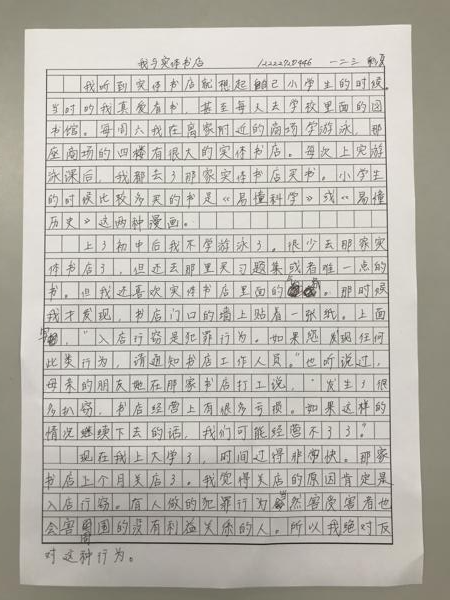 我与实体书店 一二三
我听到实体书店就想起自己小学生的时候。
当时的我真爱看书，甚至每天去学校里面的图
书馆。每周六我在离家附近的商场学游泳，那
座商场的四楼有很大的实体书店。每次上完游
泳课后，我都去了那家实体书店买书。小学生
的时候比较多买的书是《易懂科学》或《易懂
历史》这两种漫画。
上了初中后我不学游泳了。很少去那家实
体书店了，但还去那里买习题集或者唯一点的
书。但我还喜欢实体书店里面的 。那时候
我才发现，书店门口的墙上贴着一张纸。上面
写，"入店行窃是犯罪行为。如果您发现任何
此类行为，请通知书店工作人员。"也听说过，
母亲的朋友她在那家书店打工说，"发生了很
多扒窃，书店经营上有很多亏损。如果这样的
情况继续下去的话，我们可能经营不了了。"
现在我上大学了，时间过得非常快。那家
书店上个月关店了。我觉得关店的原因肯定是
入店行窃。有人做的犯罪行为当然害受害者也
会害周围的没有利益关系的人。所以我绝对反
对这种行为。